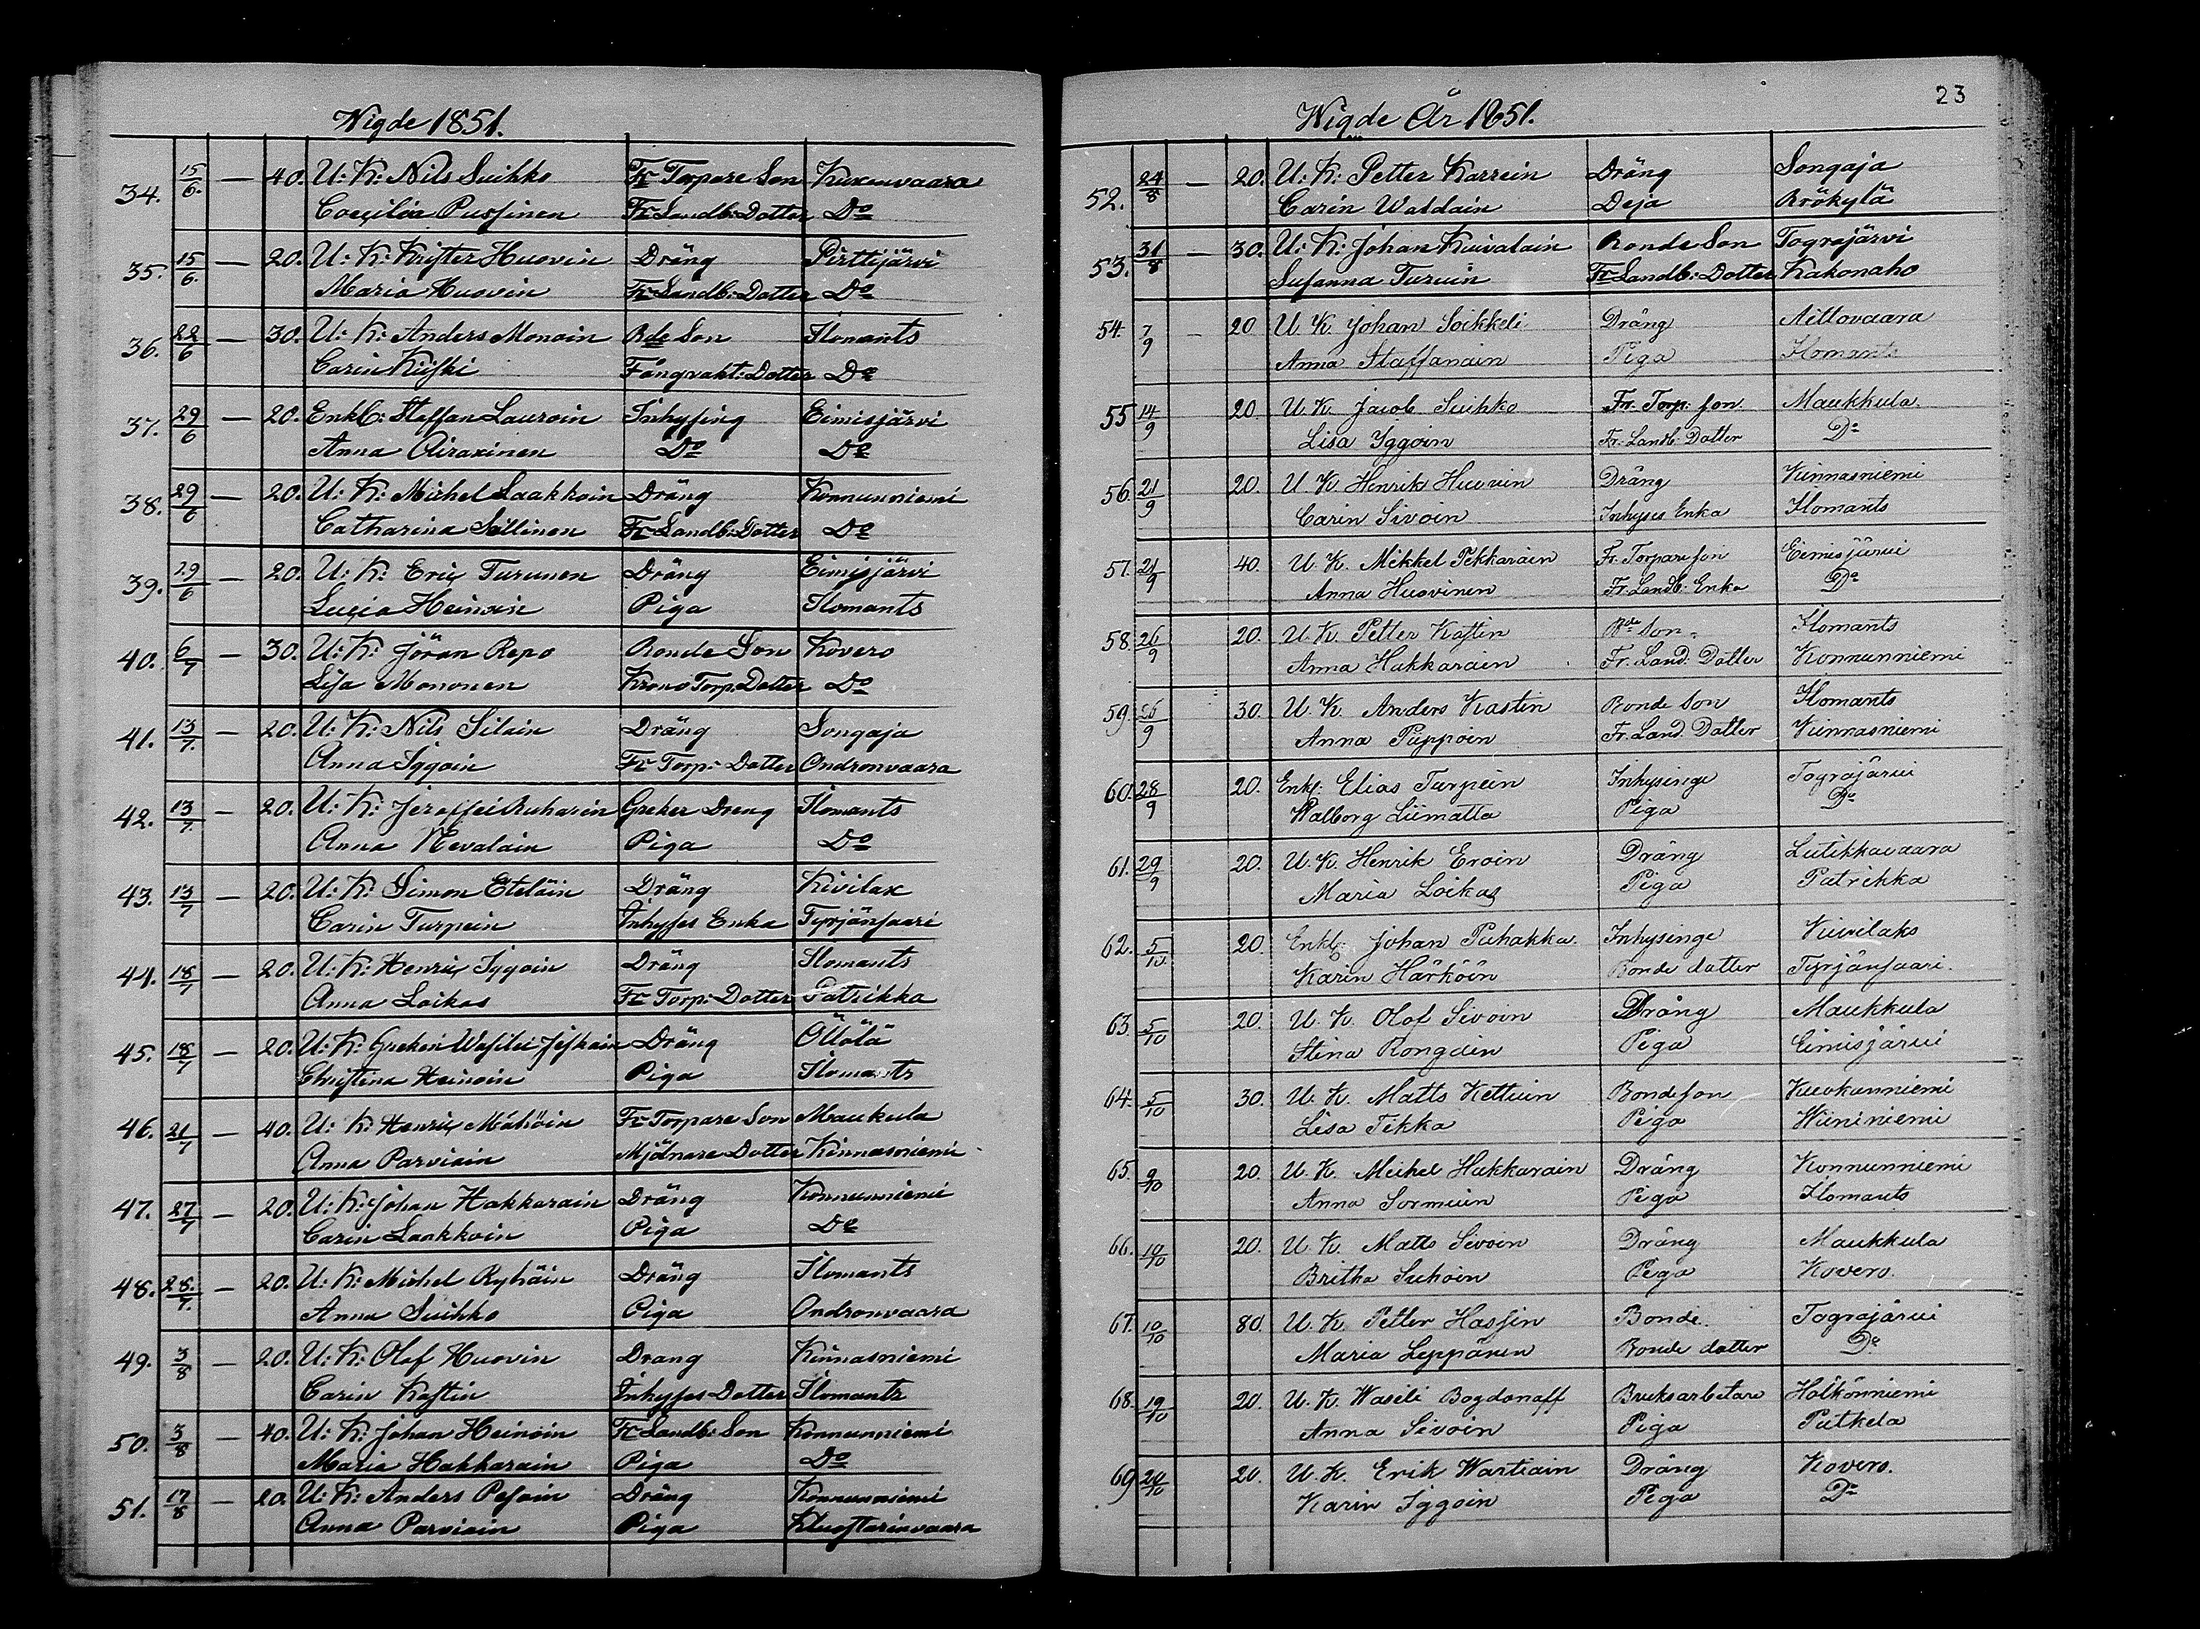 Wigde 1851.
34. 15/6. — 40. U: K: Nils Suihko Fr Torpare Son Kuxenvaara
Coeçilia Pussinen Fr Landb: Dotter Do
35. 15/6. — 20. U: K: Krister Huovin Dräng Pirttijärvi
Maria Huovin Fr Landb: Dotter Do
36. 22/6 — 30. U: K: Anders Monoin Bde Son Ilomants
Carin Kiiski Fångvakt: Dotter Do
37. 29/6 — 20. Enkl: Staffan Lauroin Inhysing Eimisjärvi
Anna Airaxinen Do Do
38. 29/6 — 20. U: K: Michel Laakkoin Dräng Konnunniemi
Catharina Sallinen Fr Landb: Dotter Do
39. 29/6 — 20. U: K: Eriç Turunen Dräng Eimisjärvi
Luçia Heinoin Piga Ilomants
40. 6/7 — 30. U: K: Jöran Repo Bonde Son Kovero
Lisa Mononen Krono Torp: Dotter Do
41. 13/7. — 20. U: K: Nils Silain Dräng Songaja
Anna Iggoin Fr Torp: Dotter Ondronvaara
42. 13/7. — 20. U: K: Jeroffei Buharin Greker Dreng Ilomants
Anna Nevalain Piga Do
43. 13/7 — 20. U: K: Simon Eteläin Dräng Kivilax
Carin Turpein Inhyses Enka Tyrjänsaari
44. 18/7 — 20. U: K: Henriç Iggoin Dräng Ilomants
Anna Loikas Fr Torp: Dotter Patrikka
45. 18/7 — 20. U: K: Greken Wasilei Jeskain Dräng Öllölä
Christina Heinoin Piga Ilomants
46. 21/7 — 40. U: K: Henriç Mähöin Fr Torpare Son Maukula
Anna Parviain Mjölnare Dotter Kinnasniemi
47. 27/7 — 20. U: K: Johan Hakkarain Dräng Konnunniemi
Carin Laakkoin Piga Do
48. 28./7. — 20. U: K: Michel Ryhäin Dräng Ilomants
Anna Suihko Piga Ondronvaara
49. 3/8 — 20. U: K: Olof Huovin Drang Kinnasniemi
Carin Kastin Inhyses Dotter Ilomants
50. 3/8 — 40. U: K: Johan Heinoin Fr Landb: Son Konnunniemi
Maria Hakkarain Piga Do
51. 17/8 — 20. U: K: Anders Pesoin Dräng Konnunniemi
Anna Parviain Piga
23
Wigde År 1851.
52. 24/8 — 20. U: K: Petter Karrein Dräng Songaja
Carin Waldain Deja Brökylä
53. 31/8 — 30. U: K: Johan Kuivalain Bonde Son Tograjärvi
Susanna Turuin Fr Landb: Dotter Kakonaho
54. 7/9 — 20 U K Johan Soikkeli Dräng Aittovaara
Anna Staffanain Piga Ilomants
55 14/9 20. U. K. Jacob Suihko Fr. Torp: son. Maukkula.
Lisa Yggoin Fr. Landb: Dotter Do
56. 21/9 20. U. K. Henrik Huovin Dräng Kinnasniemi
Carin Sivoin Inhyses Enka Ilomants
57. 21/9 40. U. K. Mikkel Pekkarain Fr. Torpare son Eimisjärvi
Anna Huovinen Fr. Landb: Enka Do
58. 26/9 20. U. K. Petter Kastin Bde Son Ilomants
Anna Hakkarain Fr. Land: Dotter Konnunniemi
59. 26/9 30. U. K. Anders Kastin Bonde Son Ilomants
Anna Puppoin Fr. Land. Dotter Kinnasniemi
60. 28/9 20. Enkl: Elias Turpein Inhysinge Tograjärvi
Walborg Liimatta Piga Do
61. 29/9 20. U. K. Henrik Eroin Dräng Lutikkavaara
Maria Loikas Piga Patrikka
62. 5/10. 20. Enkl: Johan Puhakka. Inhysinge Kivilaks
Karin Härköin Bonde dotter Tyrjänsaari.
63. 5/10 20. U. K. Olof Sivoin Dräng Maukkula
Stina Rongain Piga Eimisjärvi
64. 5/10 30. U. K. Matts Kettuin Bonde son Kuokanniemi
Lisa Tikka Piga Hiininiemi
65. 9/10 20. U. K. Meikel Hakkarain Dräng Konnunniemi
Anna Sormuin Piga Ilomants
66. 10/10 20. U. K. Matts Sivoin Dräng Maukkula
Britha Suhoin Piga Kovero.
67. 10/10 80. U. K. Petter Hassin Bonde. Tograjärvi
Maria Leppänen Bonde dotter Do
68. 19/10 20. U. K. Wasili Bogdanoff Bruksarbetare Hölkönniemi
Anna Sivoin Piga Putkela
69 20/10 20. U. K. Erik Wartiain Dräng Kovero.
Karin Iggoin Piga Do